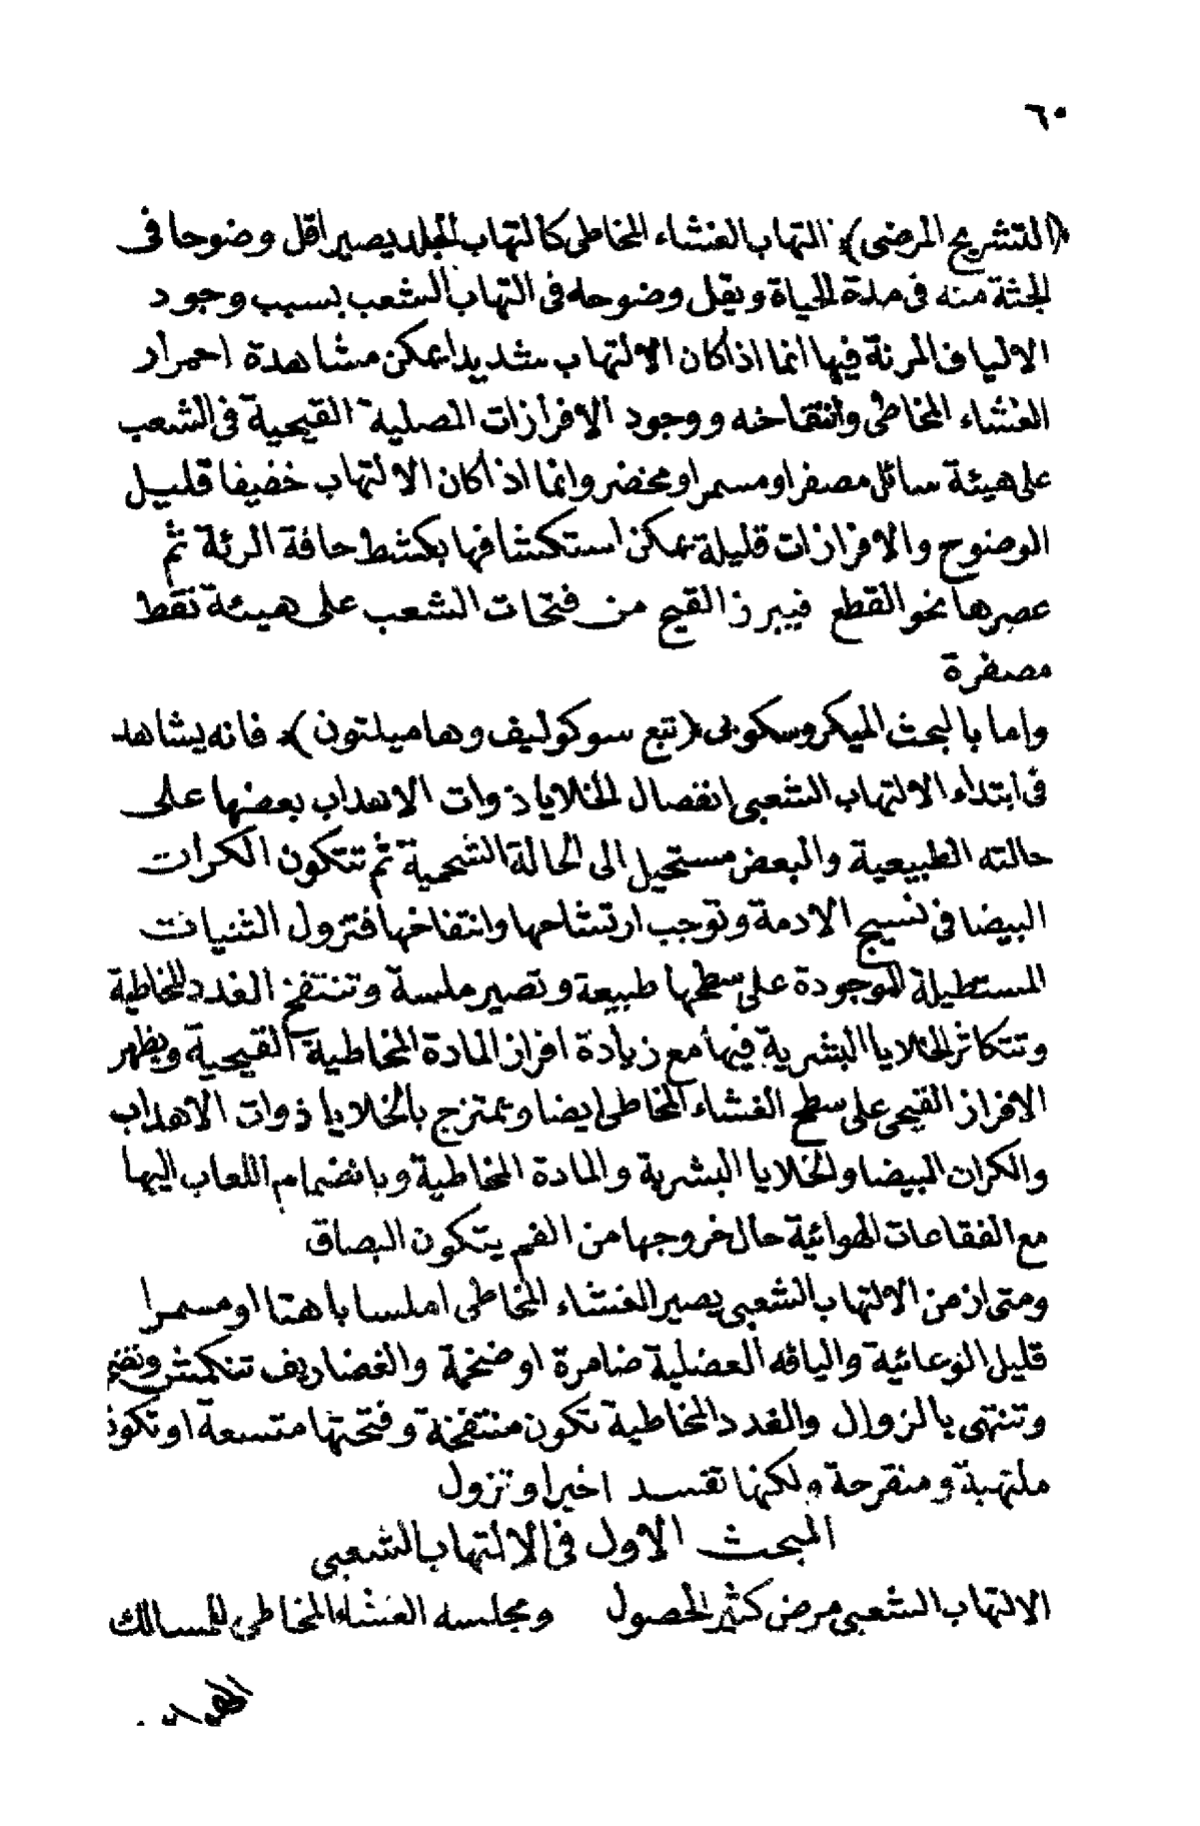 ٦٠
﴿التشريح المرضى﴾ التهاب الغشاء المخاطى كالتهاب الجلد يصير اقل وضوحا فى
الجثة منه فى مدة الحياة ويقل وضوحه فى التهاب الشعب بسبب وجود
الالياف المرنة فيها انما اذا كان الالتهاب شديدا يمكن مشاهدة احمرار
الغشاء المخاطى وانتفاخه ووجود الافرازات المصلية القيحية فى الشعب
على هيئة سائل مصفر او مسمر او مخضر وانما اذا كان الالتهاب خفيفا قليل
الوضوح والافرازات قليلة يمكن استكشافها بكشط حافة الرئة ثم
عصرها نحو القطع فيبرز القيح من فتحات الشعب على هيئة نقط
مصفرة
واما بالبحث الميكروسكوبى ﴿تبع سوكوليف وهاميلتون﴾ فانه يشاهد
فى ابتداء الالتهاب الشعبى انفصال للخلايا ذوات الاهداب بعضها على
حالته الطبيعية والبعض مستحيل الى الحالة الشحمية ثم تتكون الكرات
البيضا فى نسيج الادمة وتوجب ارتشاحها وانتفاخها فتزول الثنيات
المستطيلة الموجودة على سطحها طبيعة وتصير ملسة وتنتفخ الغدد المخاطية
وتتكاثر الخلايا البشرية فيها مع زيادة افراز المادة المخاطية القيحية ويظهر
الافراز القيحى على سطح الغشاء المخاطى ايضا ويمتزج بالخلايا ذوات الاهداب
والكرات البيضا والخلايا البشرية والمادة المخاطية وبانضمام اللعاب اليها
مع الفقاعات الهوائية حال خروجها من الفم يتكون البصاق
ومتى ازمن الالتهاب الشعبى يصير الغشاء المخاطى املسا باهتا او مسمرا
قليل الوعائية واليافه العضلية ضامرة او ضخمة والغضاريف تنكمش
وتنتهى بالزوال والغدد المخاطية تكون منتفخة وفتحتها متسعة او تكون
ملتهبة ومتقرحة ولكنها تفسد اخيرا وتزول
المبحث الاول فى الالتهاب الشعبى
الالتهاب الشعبى مرض كثير الحصول ومجلسه الغشاء المخاطى للمسالك